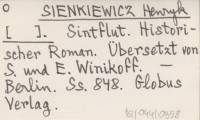 O
SIENKIEWICZ Henryk
[ ]. Sintflut. Histori-
scher Roman. Übersetzt von
S. und E. Winikoff. —
Berlin. Ss. 848. Globus
Verlag.